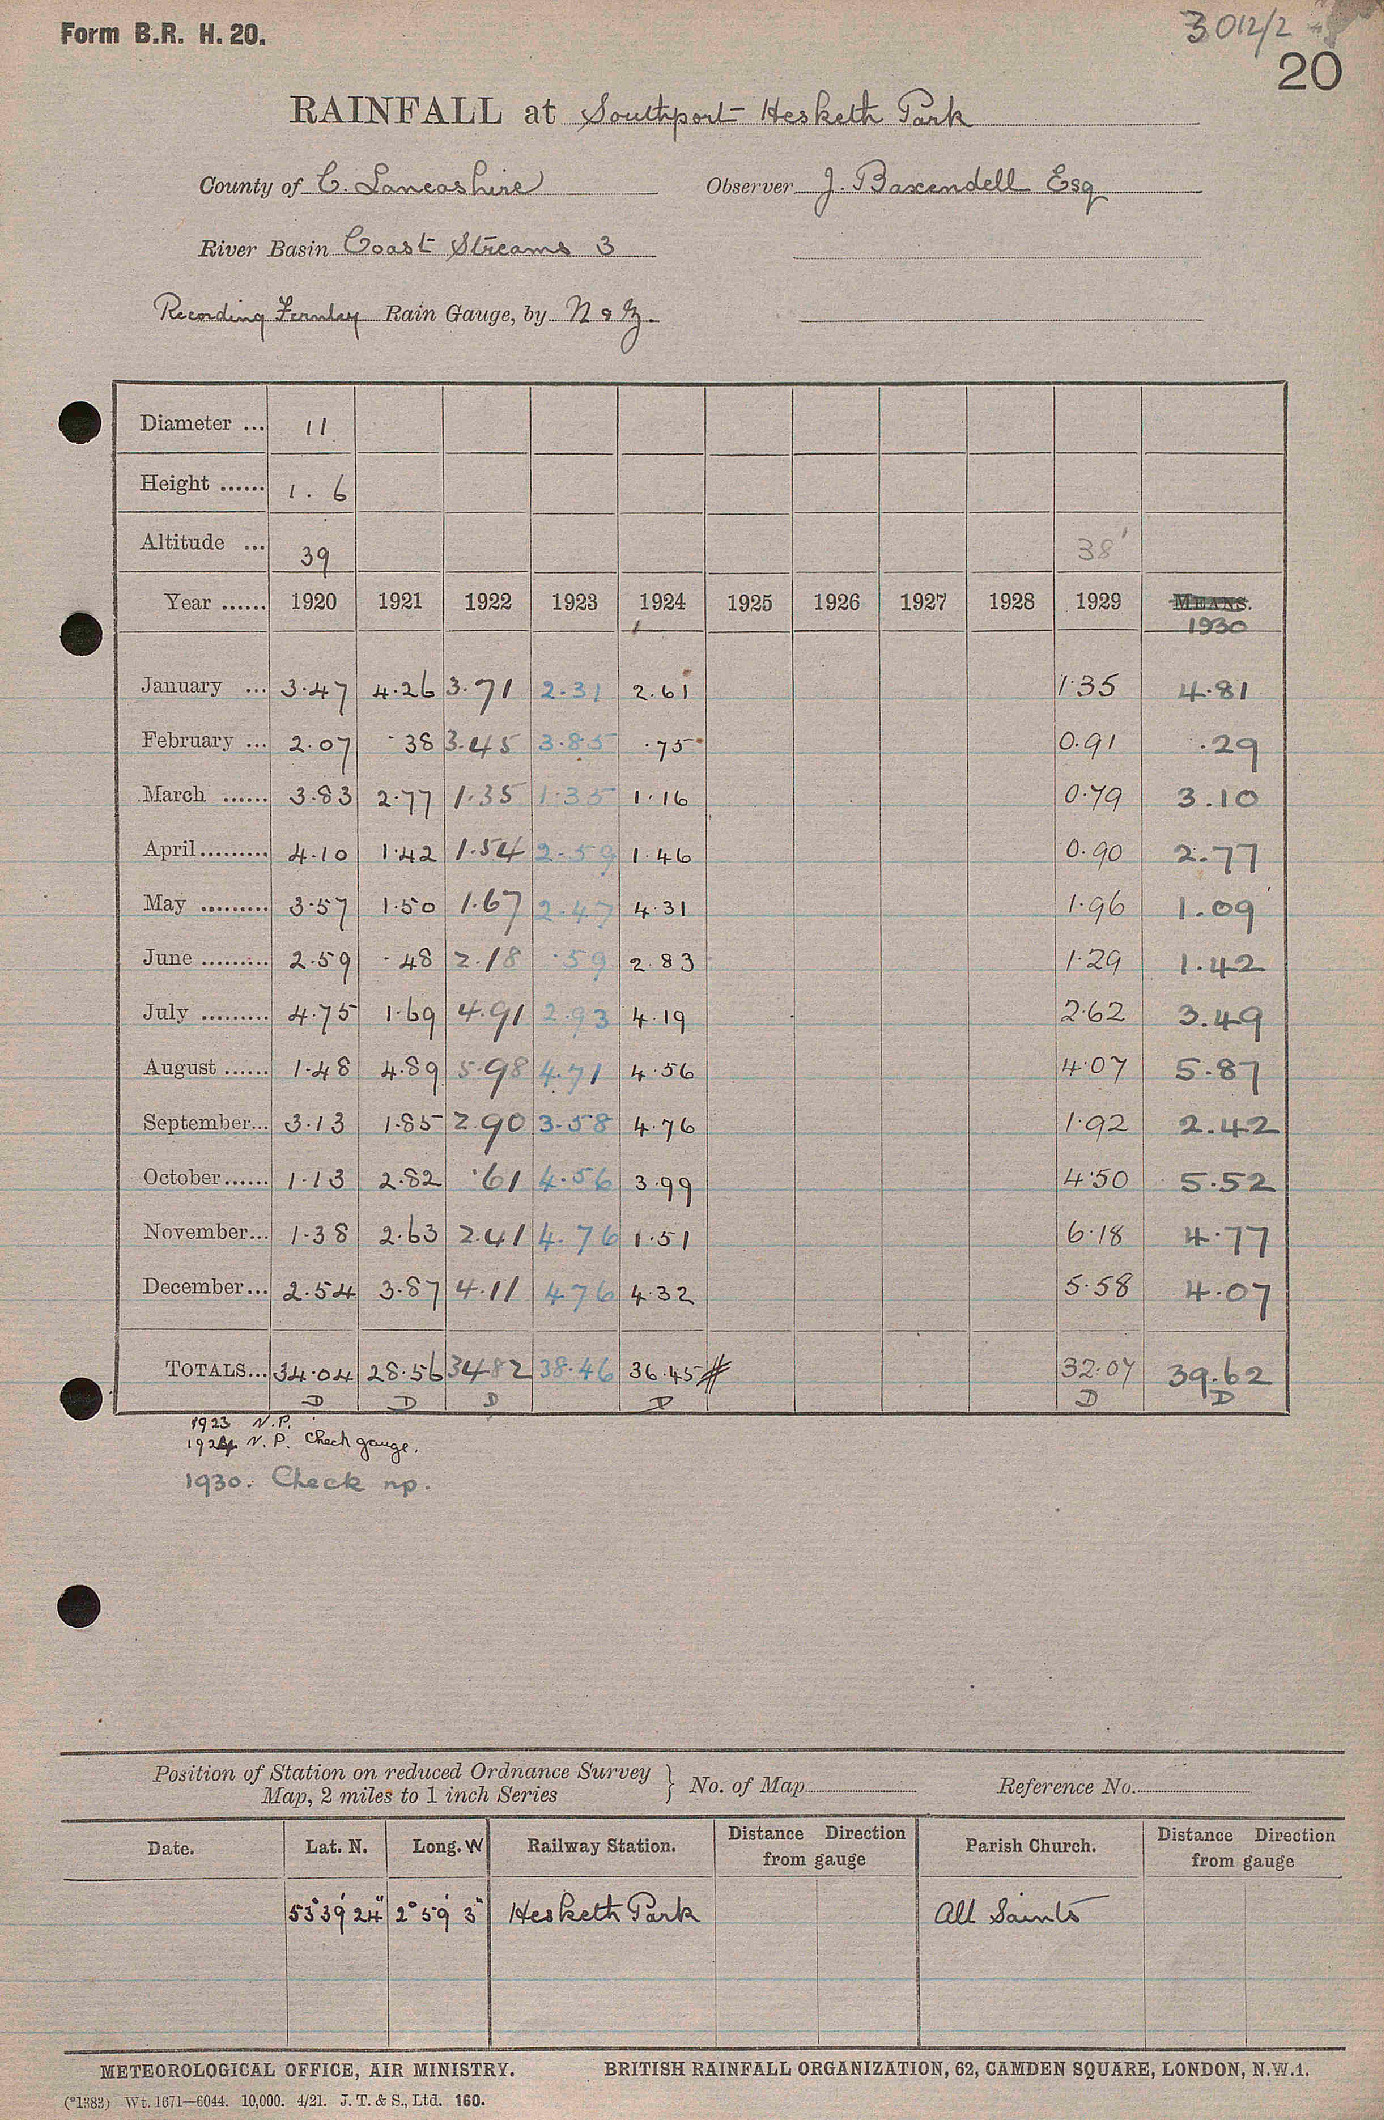 Form B.R. H. 20.
3012/2
20
RAINFALL at Southport Hesketh Park
County of C. Lancashire Observer J. Baxendell Esq
River Basin Coast Streams 3
Recording Fernley Rain Gauge, by N & Z.
Diameter ... 11
Height ...... 1. 6
Altitude ... 39 38'
Year ...... 1920 1921 1922 1923 1924 1925 1926 1927 1928 1929 MEANS.
1930
January ... 3.47 4.26 3.71 2.31 2.61 1.35 4.81
February ... 2.07 .38 3.45 3.85 .75 0.91 .29
March ...... 3.83 2.77 1.35 1.35 1.16 0.79 3.10
April ......... 4.10 1.42 1.54 2.59 1.46 0.90 2.77
May ......... 3.57 1.50 1.67 2.47 4.31 1.96 1.09
June ......... 2.59 .48 2.18 .59 2.83 1.29 1.42
July ......... 4.75 1.69 4.91 2.93 4.19 2.62 3.49
August ...... 1.48 4.89 5.98 4.71 4.56 4.07 5.87
September... 3.13 1.85 2.90 3.58 4.76 1.92 2.42
October...... 1.13 2.82 .61 4.56 3.99 4.50 5.52
November... 1.38 2.63 2.41 4.76 1.51 6.18 4.77
December... 2.54 3.87 4.11 4.76 4.32 5.58 4.07
TOTALS... 34.04 28.56 34.82 38.46 36.45 # 32.07 39.62
D D D D D D
1923 N.P.
1924 N.P. Check gauge.
1930. Check np.
Position of Station on reduced Ordnance Survey
Map, 2 miles to 1 inch Series } No. of Map Reference No.
Date. Lat. N. Long. W Railway Station. Distance Direction from gauge Parish Church. Distance Direction from gauge
53°39'24" 2°59'3" Hesketh Park All Saints
METEOROLOGICAL OFFICE, AIR MINISTRY. BRITISH RAINFALL ORGANIZATION, 62, CAMDEN SQUARE, LONDON, N.W.1.
(*1383) Wt. 1671—6044. 10,000. 4/21. J. T. & S., Ltd. 160.